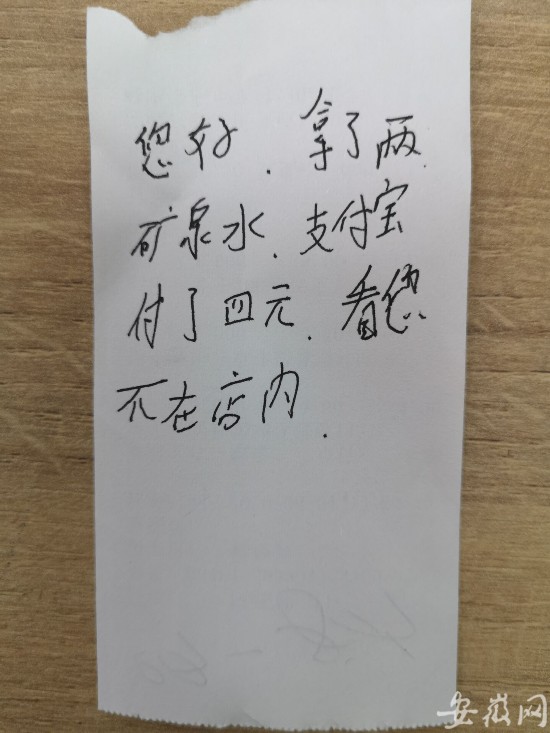 您好、拿了两
矿泉水、支付宝
付了四元、看您
不在店内.
安徽网